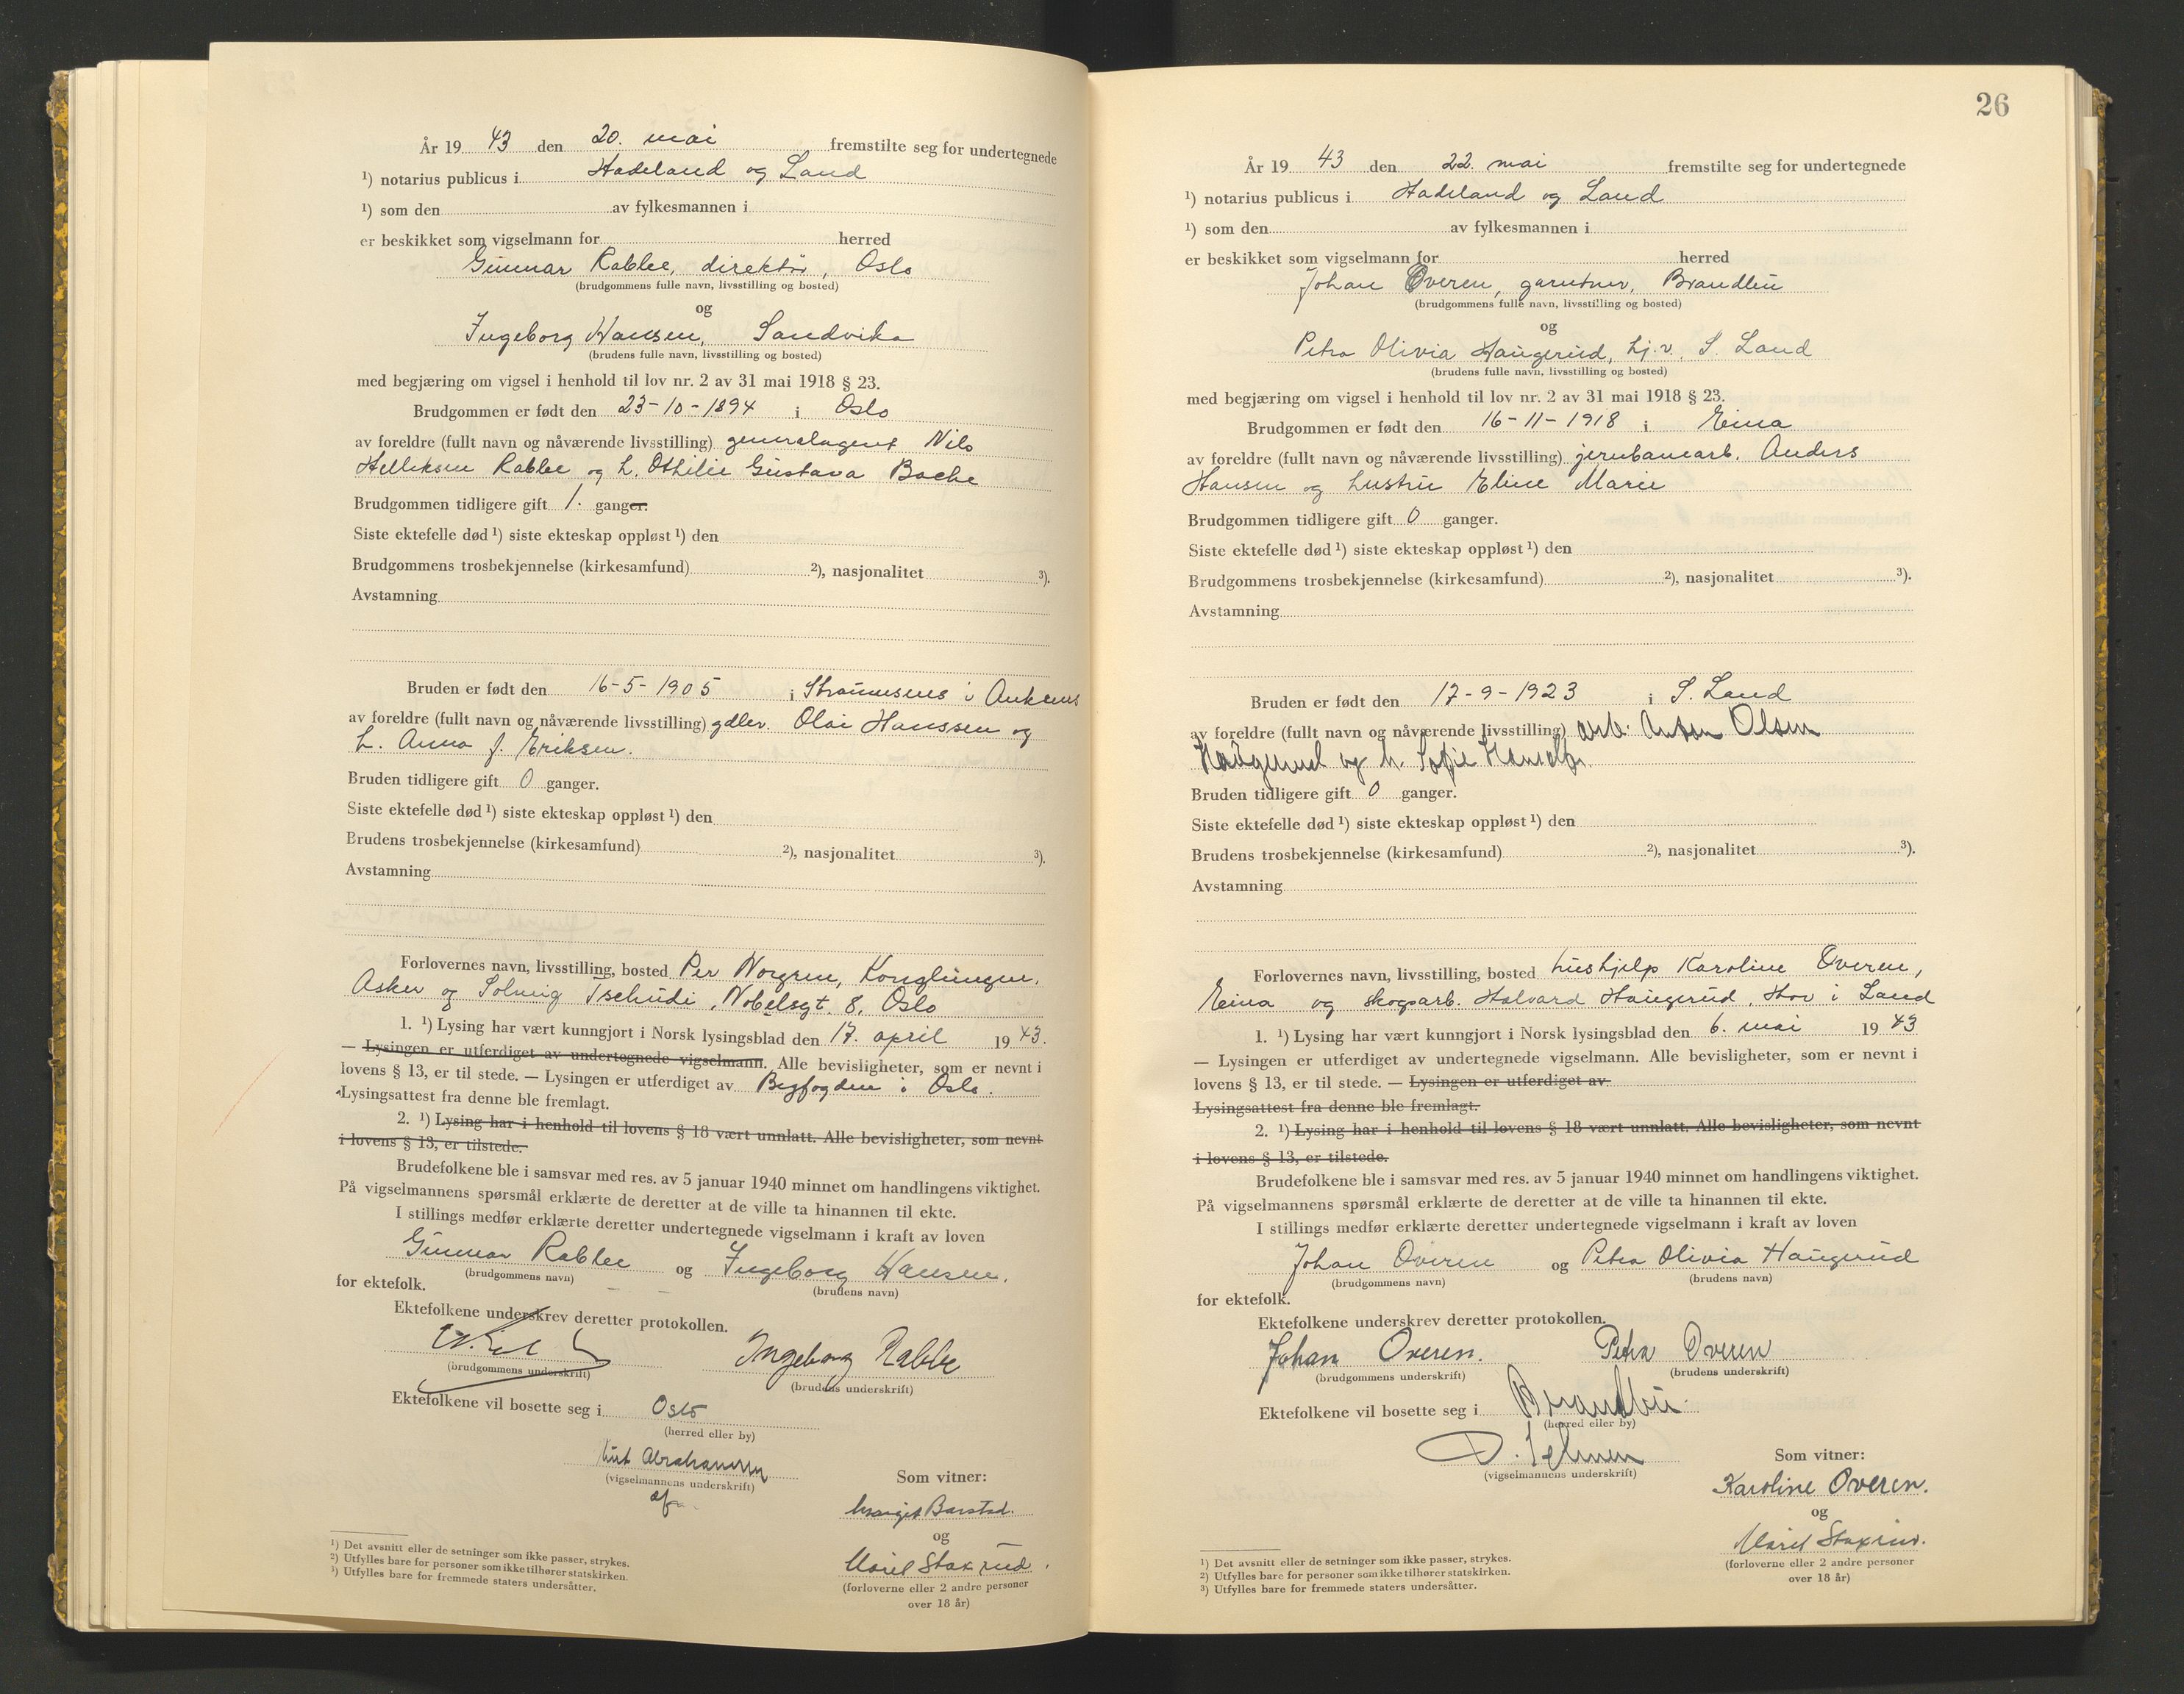 År 19 43 den 20. mai fremstilte seg for undertegnede
¹) notarius publicus i Hadeland og Land
¹) som den av fylkesmannen i
er beskikket som vigselmann for herred
Gunnar Rabbe, direktør, Oslo
(brudgommens fulle navn, livsstilling og bosted)
og
Ingeborg Hansen, Sandvika
(brudens fulle navn, livsstilling og bosted)
med begjæring om vigsel i henhold til lov nr. 2 av 31 mai 1918 § 23.
Brudgommen er født den 23-10-1894 i Oslo
av foreldre (fullt navn og nåværende livsstilling) generalagent Nils
Helliksen Rabbe og h. Othilie Gustava Bache
Brudgommen tidligere gift 1. ganger.
Siste ektefelle død ¹) siste ekteskap oppløst ¹) den
Brudgommens trosbekjennelse (kirkesamfund) ²), nasjonalitet ³).
Avstamning
Bruden er født den 16-5-1905 i
av foreldre (fullt navn og nåværende livsstilling) Olai Hanssen og
h. Anna f. Eriksen.
Bruden tidligere gift 0 ganger.
Siste ektefelle død ¹) siste ekteskap oppløst ¹) den
Brudens trosbekjennelse (kirkesamfund) ²), nasjonalitet ³).
Avstamning
Forlovernes navn, livsstilling, bosted Per Norgren, Konglungen,
Asker og Solveig Tschudi, Nobelsgt. 8, Oslo
1. ¹) Lysing har vært kunngjort i Norsk lysingsblad den 17. april 19 43.
— Lysingen er utferdiget av undertegnede vigselmann. Alle bevisligheter, som er nevnt i
lovens § 13, er til stede. — Lysingen er utferdiget av Byfogden i Oslo.
Lysingsattest fra denne ble fremlagt.
2. ¹) Lysing har i henhold til lovens § 18 vært unnlatt. Alle bevisligheter, som nevnt
i lovens § 13, er tilstede.
Brudefolkene ble i samsvar med res. av 5 januar 1940 minnet om handlingens viktighet.
På vigselmannens spørsmål erklærte de deretter at de ville ta hinannen til ekte.
I stillings medfør erklærte deretter undertegnede vigselmann i kraft av loven
Gunnar Rabbe og Ingeborg Hansen.
(brudgommens navn) (brudens navn)
for ektefolk.
Ektefolkene underskrev deretter protokollen.
Ingeborg Rabbe
(brudgommens underskrift) (brudens underskrift)
Ektefolkene vil bosette seg i Oslo
(herred eller by)
Abrahamsen
(vigselmannens underskrift)
Som vitner:
Margit Barstad.
og
Marit Staxrud
(forloverne eller 2 andre personer
over 18 år)
¹) Det avsnitt eller de setninger som ikke passer, strykes.
²) Utfylles bare for personer som ikke tilhører statskirken.
³) Utfylles bare for fremmede staters undersåtter.
26
År 19 43 den 22. mai fremstilte seg for undertegnede
¹) notarius publicus i Hadeland og Land
¹) som den av fylkesmannen i
er beskikket som vigselmann for herred
Johan Øveren, gartner, Brandbu
(brudgommens fulle navn, livsstilling og bosted)
og
Petra Olivia Haugerud, hj.v. S. Land
(brudens fulle navn, livsstilling og bosted)
med begjæring om vigsel i henhold til lov nr. 2 av 31 mai 1918 § 23.
Brudgommen er født den 16-11-1918 i Eina
av foreldre (fullt navn og nåværende livsstilling) jernbanearb. Anders
Hansen og hustru Eline Marie
Brudgommen tidligere gift 0 ganger.
Siste ektefelle død ¹) siste ekteskap oppløst ¹) den
Brudgommens trosbekjennelse (kirkesamfund) ²), nasjonalitet ³).
Avstamning
Bruden er født den 17-9-1923 i S. Land
av foreldre (fullt navn og nåværende livsstilling) arb. Anton Olsen
Haugerud og h. Sofie
Bruden tidligere gift 0 ganger.
Siste ektefelle død ¹) siste ekteskap oppløst ¹) den
Brudens trosbekjennelse (kirkesamfund) ²), nasjonalitet ³).
Avstamning
Forlovernes navn, livsstilling, bosted hushjelp Karoline Øveren,
Eina og skogsarb. Halvard Haugerud, Hov i Land
1. ¹) Lysing har vært kunngjort i Norsk lysingsblad den 6. mai 19 43
— Lysingen er utferdiget av undertegnede vigselmann. Alle bevisligheter, som er nevnt i
lovens § 13, er til stede. — Lysingen er utferdiget av
Lysingsattest fra denne ble fremlagt.
2. ¹) Lysing har i henhold til lovens § 18 vært unnlatt. Alle bevisligheter, som nevnt
i lovens § 13, er tilstede.
Brudefolkene ble i samsvar med res. av 5 januar 1940 minnet om handlingens viktighet.
På vigselmannens spørsmål erklærte de deretter at de ville ta hinannen til ekte.
I stillings medfør erklærte deretter undertegnede vigselmann i kraft av loven
Johan Øveren og Petra Olivia Haugerud
(brudgommens navn) (brudens navn)
for ektefolk.
Ektefolkene underskrev deretter protokollen.
Johan Øveren. Petra Øveren
(brudgommens underskrift) (brudens underskrift)
Ektefolkene vil bosette seg i Brandbu.
(herred eller by)
(vigselmannens underskrift)
Som vitner:
Karoline Øveren.
og
Marit Staxrud.
(forloverne eller 2 andre personer
over 18 år)
¹) Det avsnitt eller de setninger som ikke passer, strykes.
²) Utfylles bare for personer som ikke tilhører statskirken.
³) Utfylles bare for fremmede staters undersåtter.